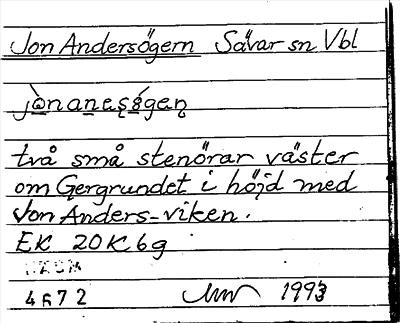 Jon Andersögern Sävar sn Vbl
jònanəṣǿgən̥
två små stenörar väster
om Gergrundet i höjd med
Jon Anders-viken.
EK 20K6g
4672 1993